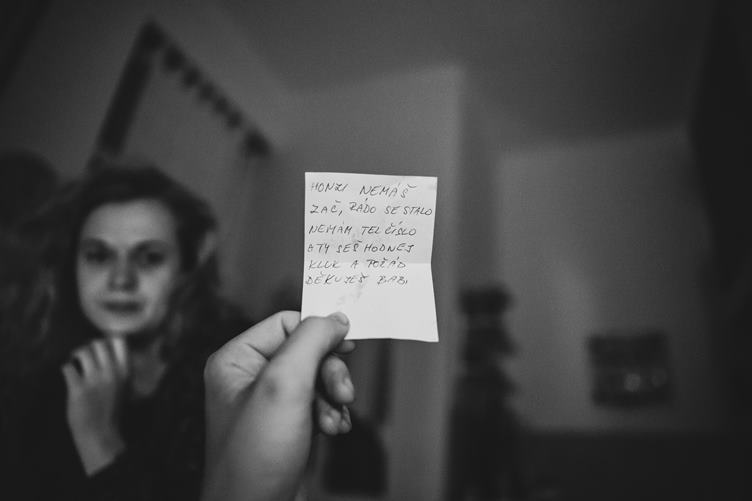 HONZI NEMÁŠ
ZAČ, RÁDO SE STALO
NEMÁM TEL ČÍSLO
A TY SEŠ HODNEJ
KLUK A POŘÁD
DĚKUJEŠ BABI